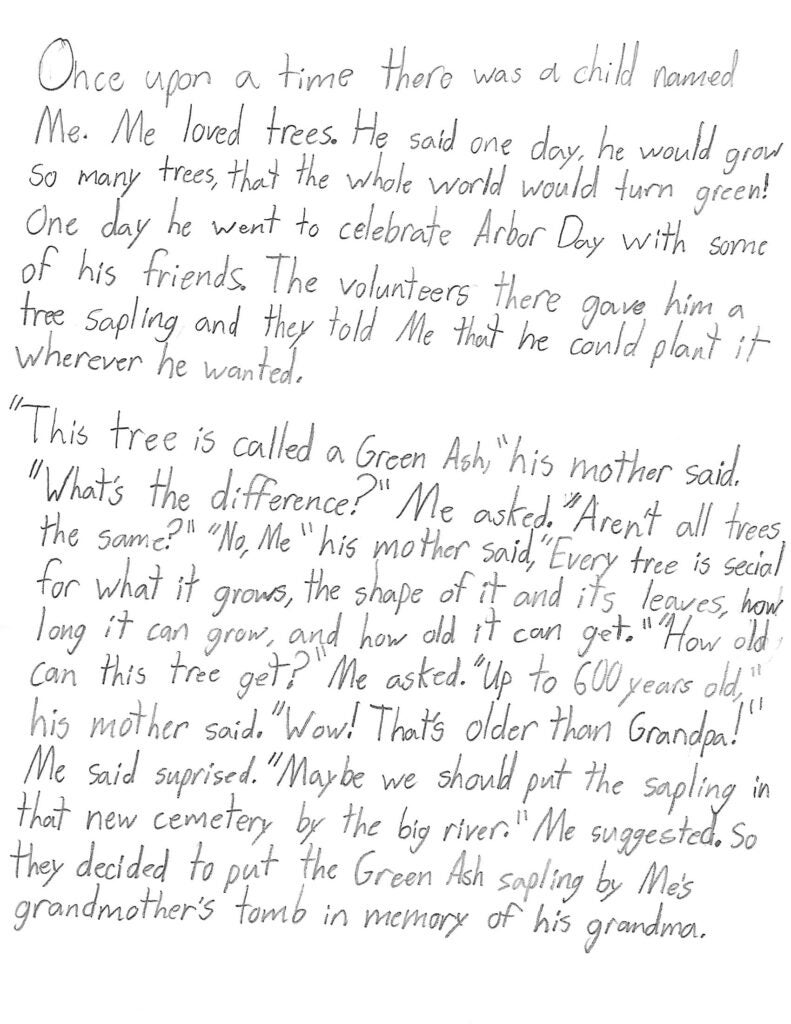 Once upon a time there was a child named
Me. Me loved trees. He said one day, he would grow
so many trees, that the whole world would turn green!
One day he went to celebrate Arbor Day with some
of his friends. The volunteers there gave him a
tree sapling and they told Me that he could plant it
wherever he wanted.
"This tree is called a Green Ash," his mother said.
"What's the difference?" Me asked. "Aren't all trees
the same?" "No, Me" his mother said, "Every tree is secial
for what it grows, the shape of it and its leaves, how
long it can grow, and how old it can get." "How old
can this tree get?" Me asked. "Up to 600 years old,"
his mother said. "Wow! That's older than Grandpa!"
Me said suprised. "Maybe we should put the sapling in
that new cemetery by the big river." Me suggested. So
they decided to put the Green Ash sapling by Me's
grandmother's tomb in memory of his grandma.